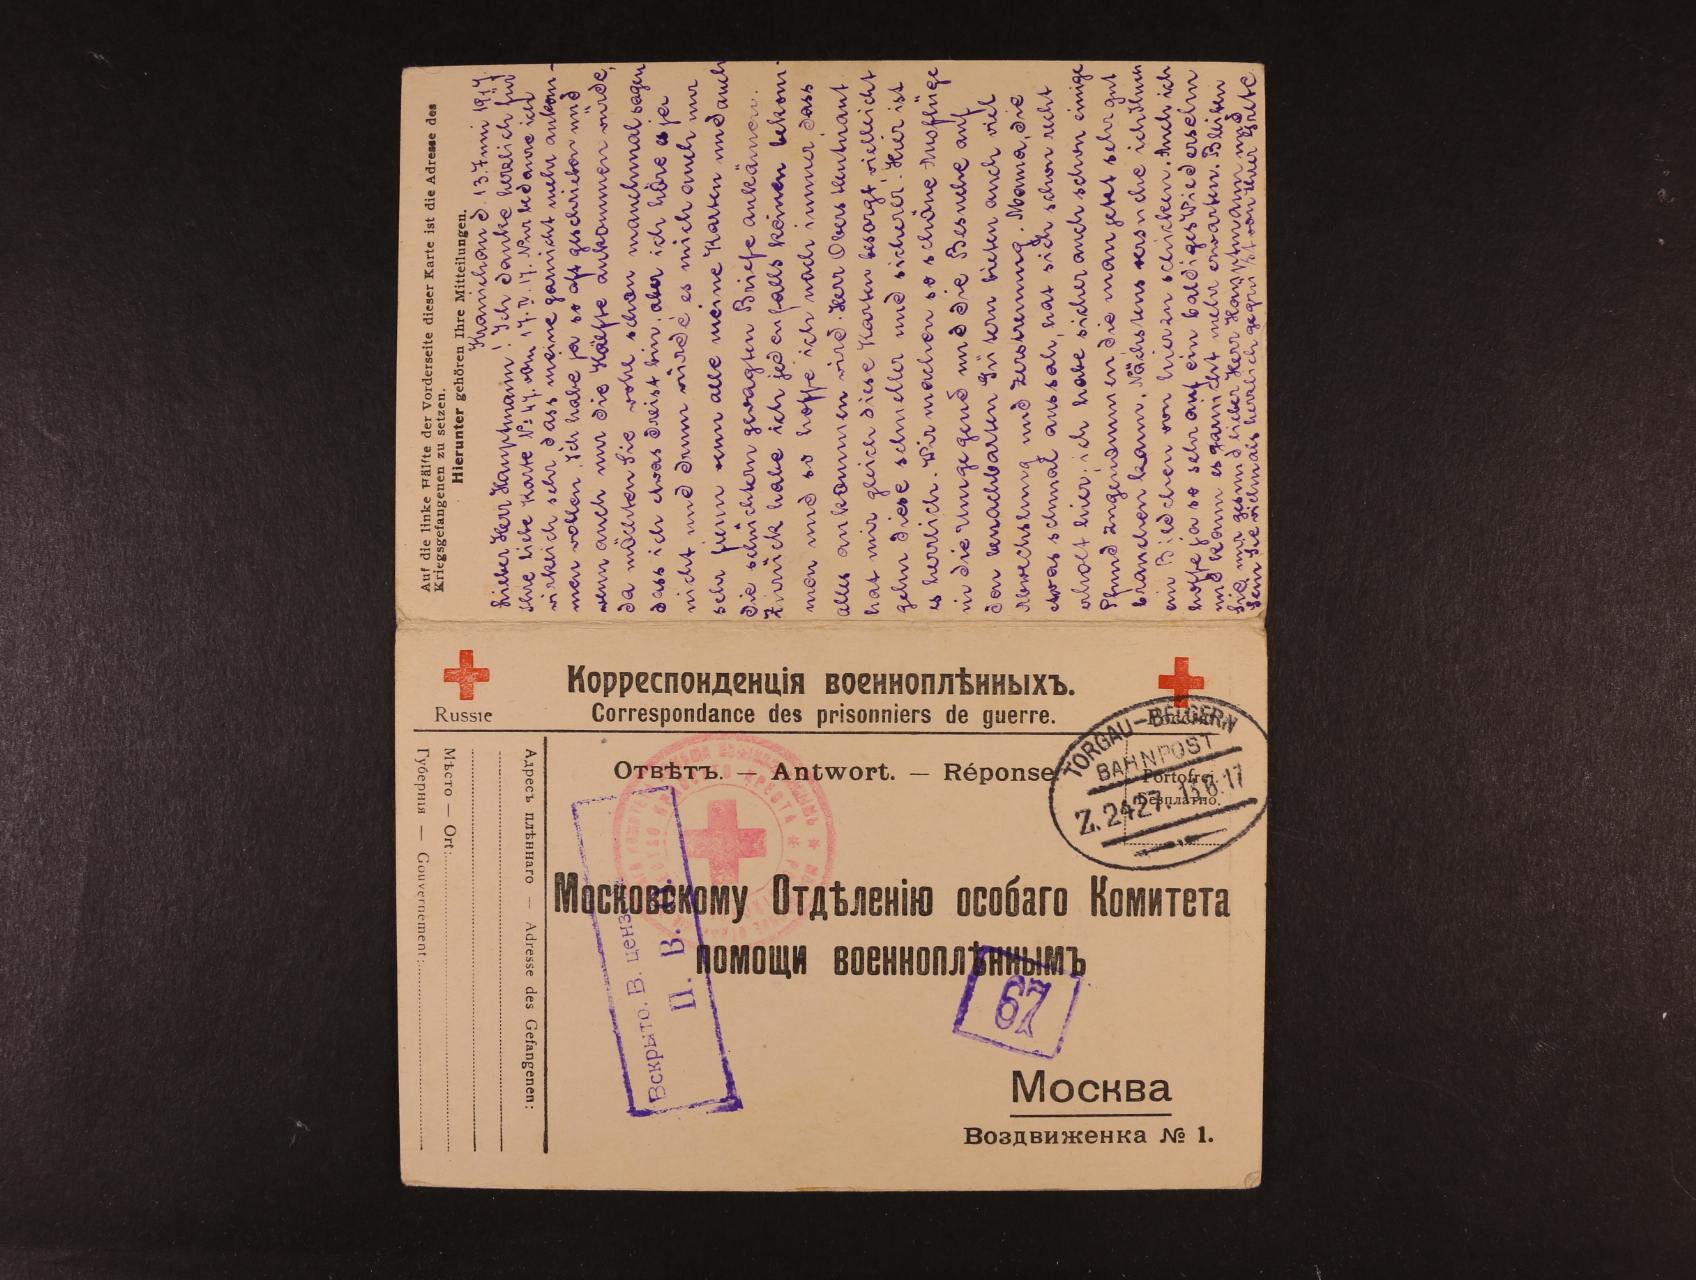 Auf die linke Hälfte der Vorderseite dieser Karte ist die Adresse des
Kriegsgefangenen zu setzen.
Hierunter gehören Ihre Mitteilungen.
d. 13. Juni 1917.
Lieber Herr Hauptmann! Ich danke herzlich für
Ihre liebe Karte No 47. vom 17. IV. 17. Nur bedaure ich
wirklich sehr dass meine garnicht mehr ankom-
men wollen. Ich habe ja so oft geschrieben und
wenn auch nur die Hälfte ankommen würde,
da möchten Sie wohl schon manchmal sagen
dass ich etwas dreist bin, aber ich höre es ja
nicht und drum würde es mich auch nur
sehr freun wenn alle meine Karten und auch
die schüchtern gewagten Briefe ankämen.
Zurück habe ich jedenfalls keinen bekom-
men und so hoffe ich noch immer dass
alles ankommen wird. Herr Oberstleutnant
hat mir gleich diese Karten besorgt vielleicht
gehn diese schneller und sicherer. Hier ist
es herrlich. Wir machen so schöne Ausflüge
in die Umgegend und die Besuche auf
den benachbarten Gütern bieten auch viel
Abwechslung und Zerstreuung. Mama, die
etwas schmal aussah, hat sich schon recht
erholt hier. ich habe sicher auch schon einige
Pfund zugenommen die man jetzt sehr gut
brauchen kann. Nächstens versuche ich Ihnen
ein Bildchen von hier zu schicken. Auch ich
hoffe ja so sehr auf ein baldiges Wiedersehn
und kann es garnicht mehr erwarten. Bleiben
Sie nur gesund lieber Herr Hauptmann und
sein Sie vielmals herzlich gegrüsst von Ihrer Grete.
Корреспонденція военноплѣнныхъ.
Russie
Correspondance des prisonniers de guerre.
Отвѣтъ. — Antwort. — Réponse.
Portofrei.
Безплатно.
TORGAU-BELGERN
BAHNPOST
Z. 2427. 13.6.17
Московскому Отдѣленію особаго Комитета
помощи военноплѣннымъ
67
Вскрыто. В. ценз.
П. В.
Москва
Воздвиженка № 1.
Адресъ плѣннаго — Adresse des Gefangenen:
Мѣсто — Ort:
Губернія — Gouvernement: